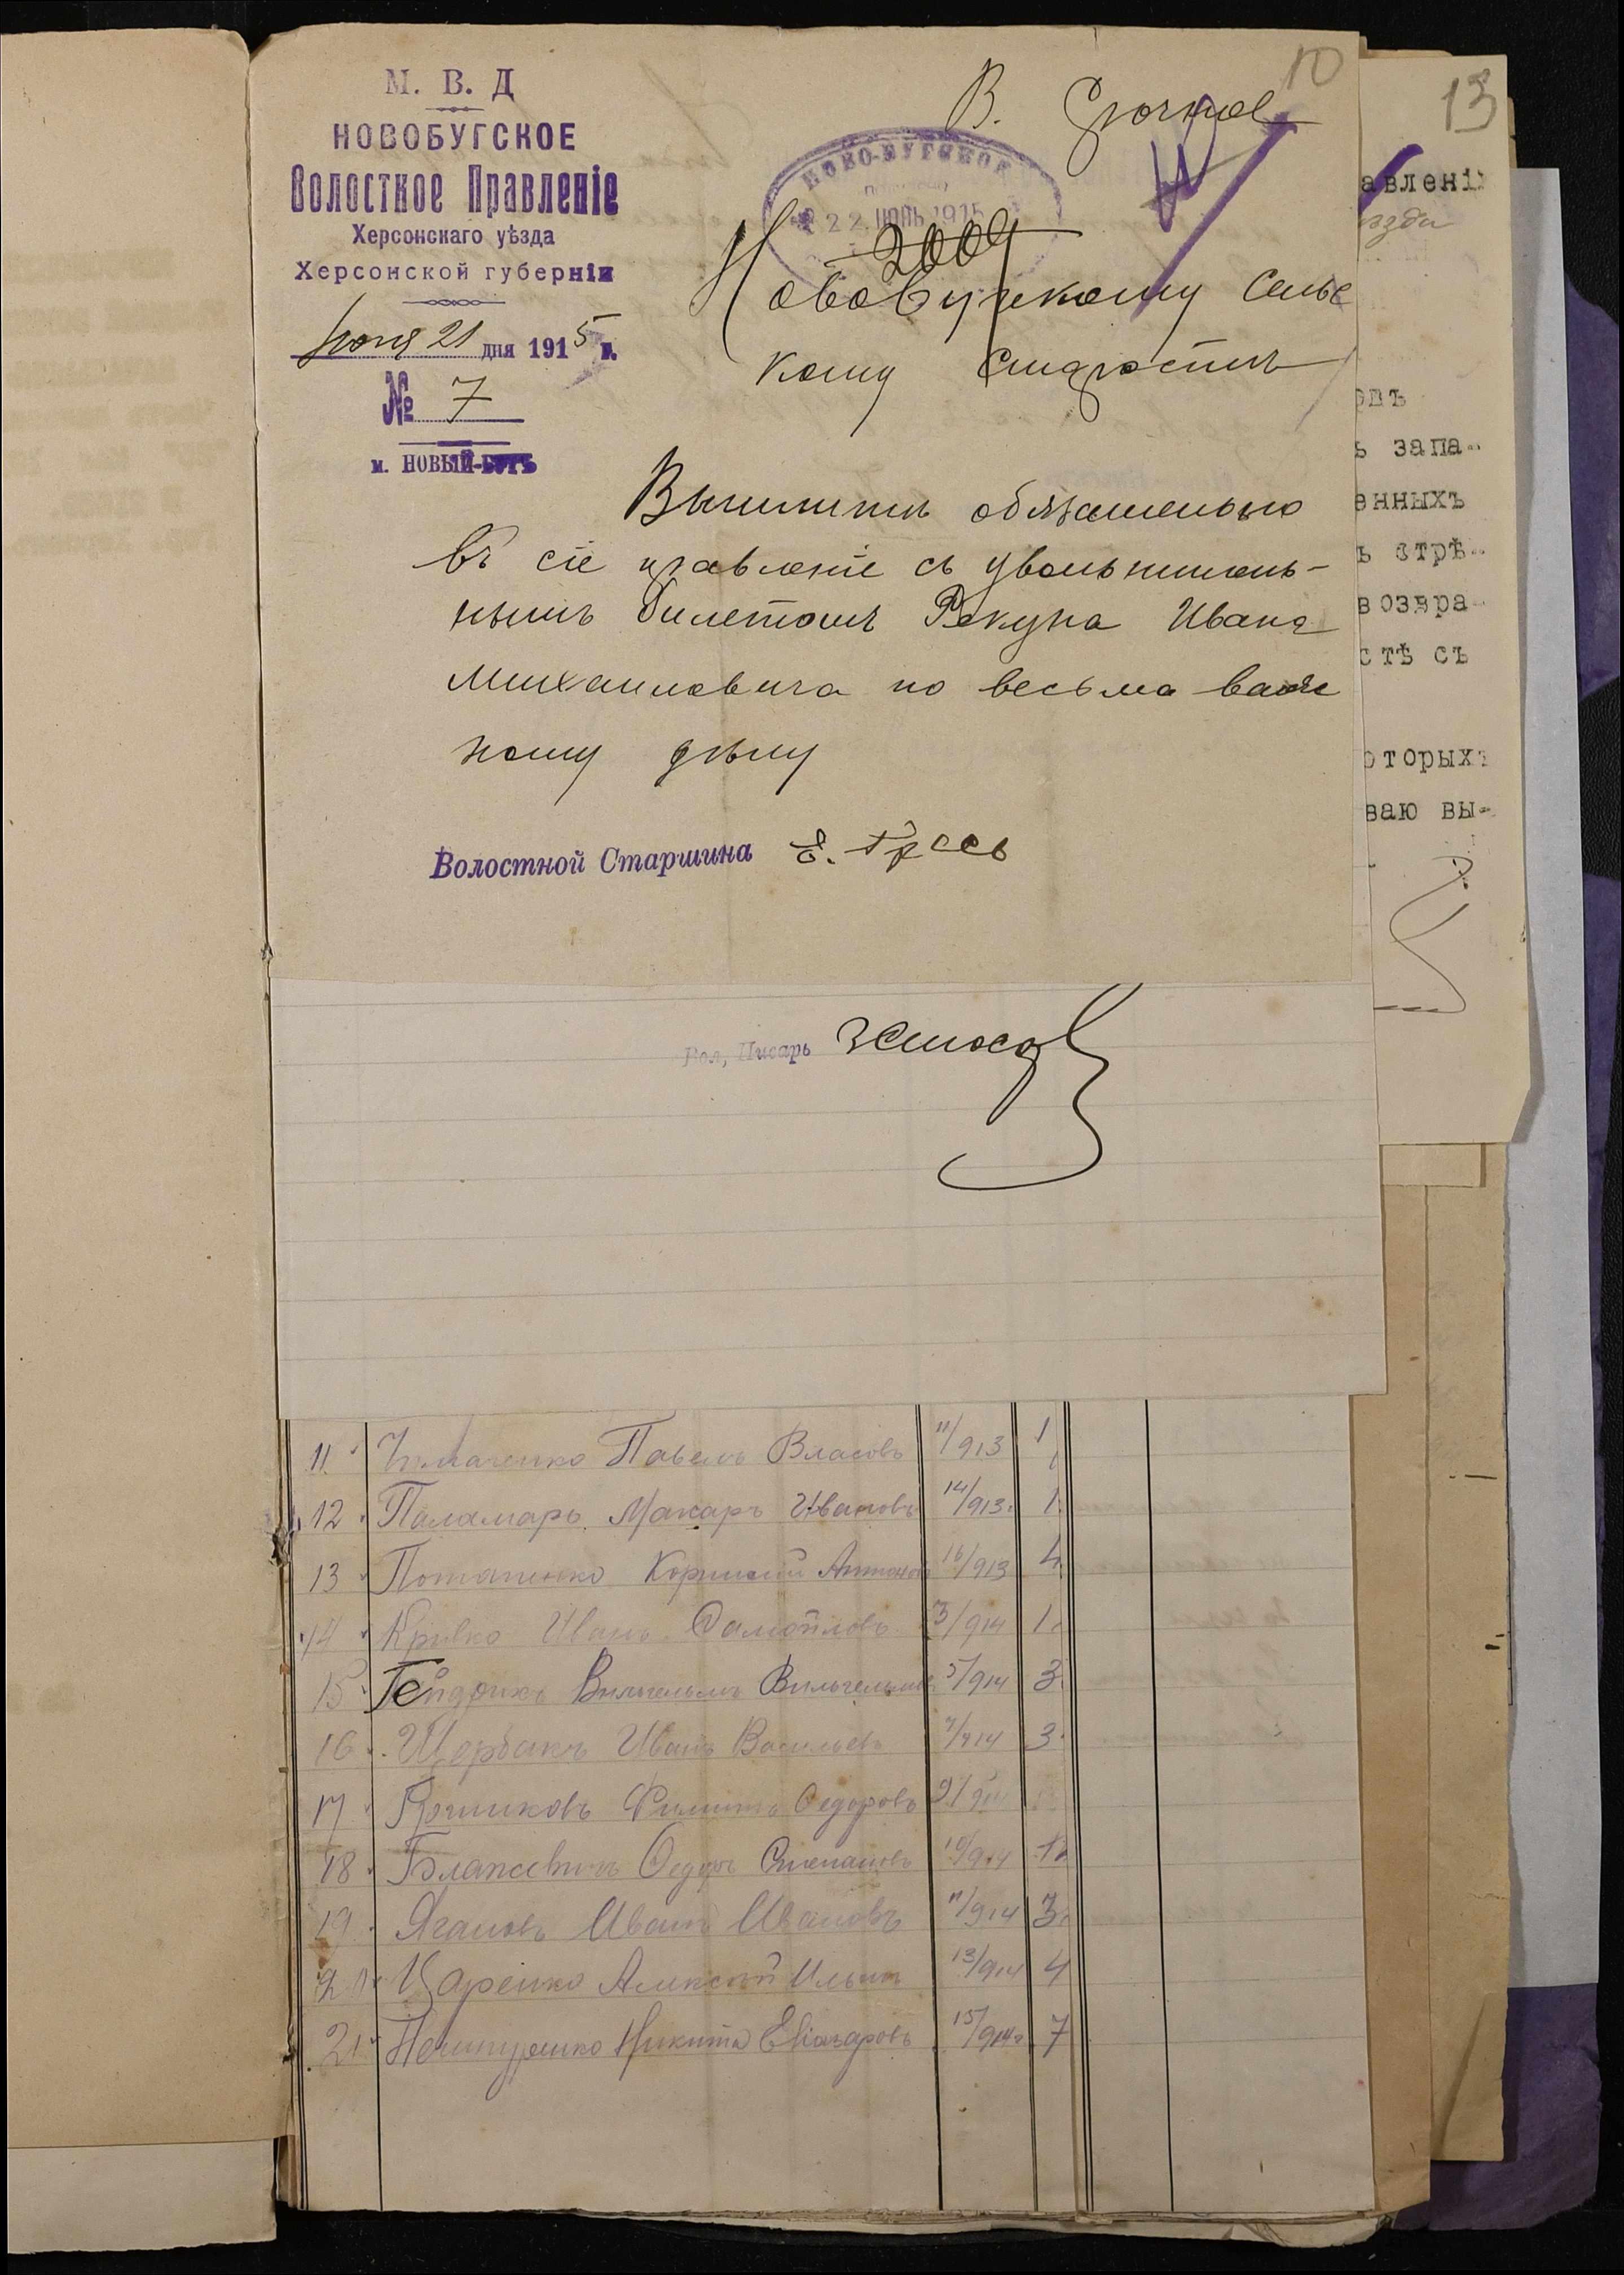 10
В. Срочное
М. В. Д
НОВОБУГСКОЕ
Волостное Правленіе
Херсонскаго уѣзда
Херсонской губерніи
Іюня 21 дня 1915 г.
№ 7
м. НОВЫЙ-БУГЪ
НОВО-БУГСКОЕ
22 ІЮНЬ 1915
2009
Новобугскому Сельс
кому Старостѣ
Вышлите обязательно
въ сіе правленіе съ увольнитель-
нымъ билетомъ Рекуна Ивана
Михайловича по весьма важ
ному дѣлу
Волостной Старшина
Вол. Писарь
11 Павелъ Власовъ 11/913 1
12 Паламарь Макаръ Ивановъ 14/913 1
13 Потапенко Корнилій Антоновъ 16/913 4
14 Кривко Иванъ Самойловъ 3/914 1
15 Гейдрихъ Вильгельмъ Вильгельмов 5/914 3
16 Щербакъ Иванъ Васильевъ 7/914 3
17 Филиппъ Федоровъ
18 Блажевичъ Федоръ Степановъ 10/914
19 Ягановъ Иванъ Ивановъ 11/914 3
20 Царенко Алексѣй Ильинъ 13/914 4
21 Никита Еліазаровъ 15/914 7
13
авленія
ѣзда
овъ
ъ запа-
енныхъ
ъ стрѣ-
возвра-
стѣ съ
оторыхъ
ваю вы-